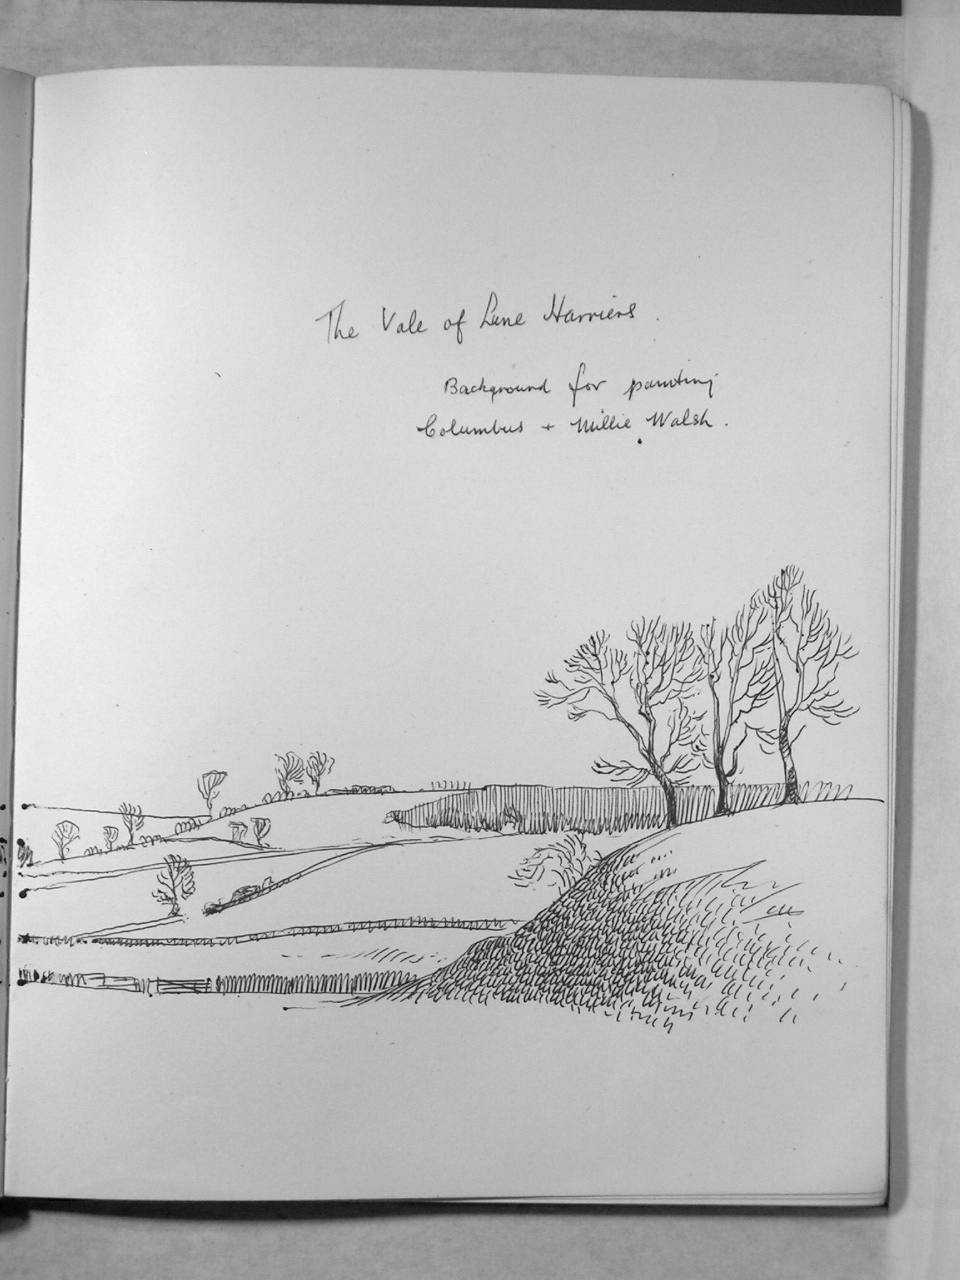 The Vale of Lune Harriers.
Background for painting
Columbus + Millie Walsh.